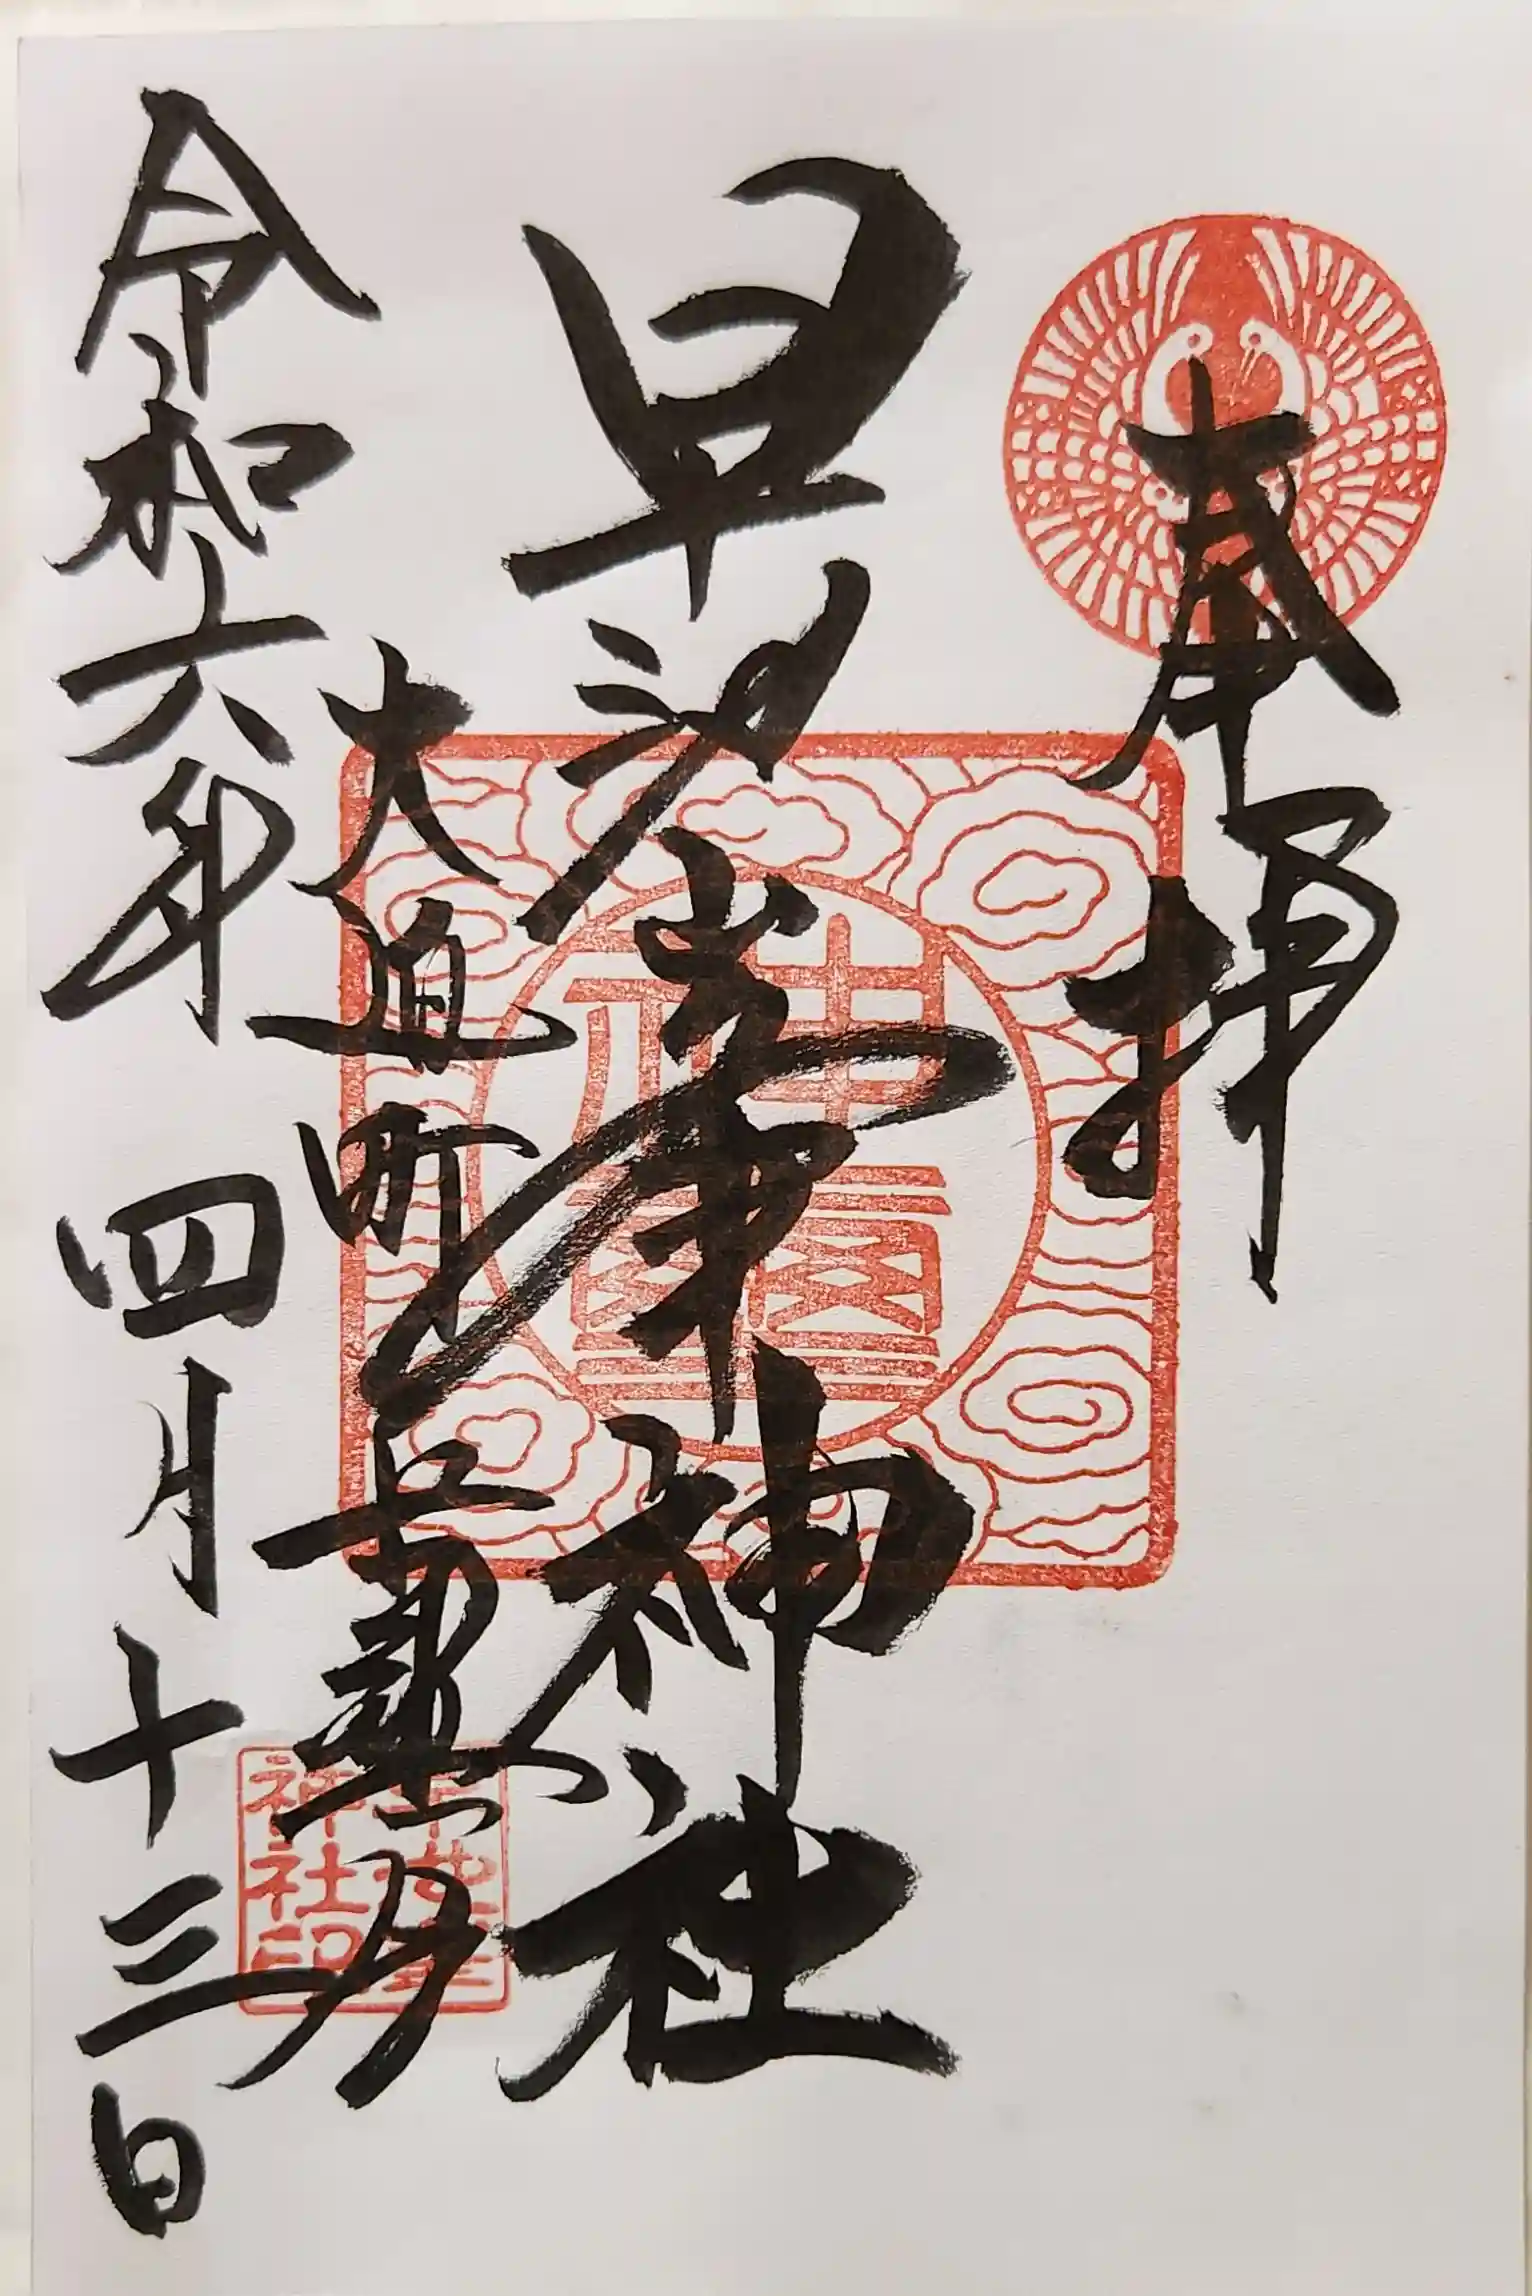 奉拝
早池峯神社
大迫町
令和六年四月十三日
神璽
早池峯
神社印